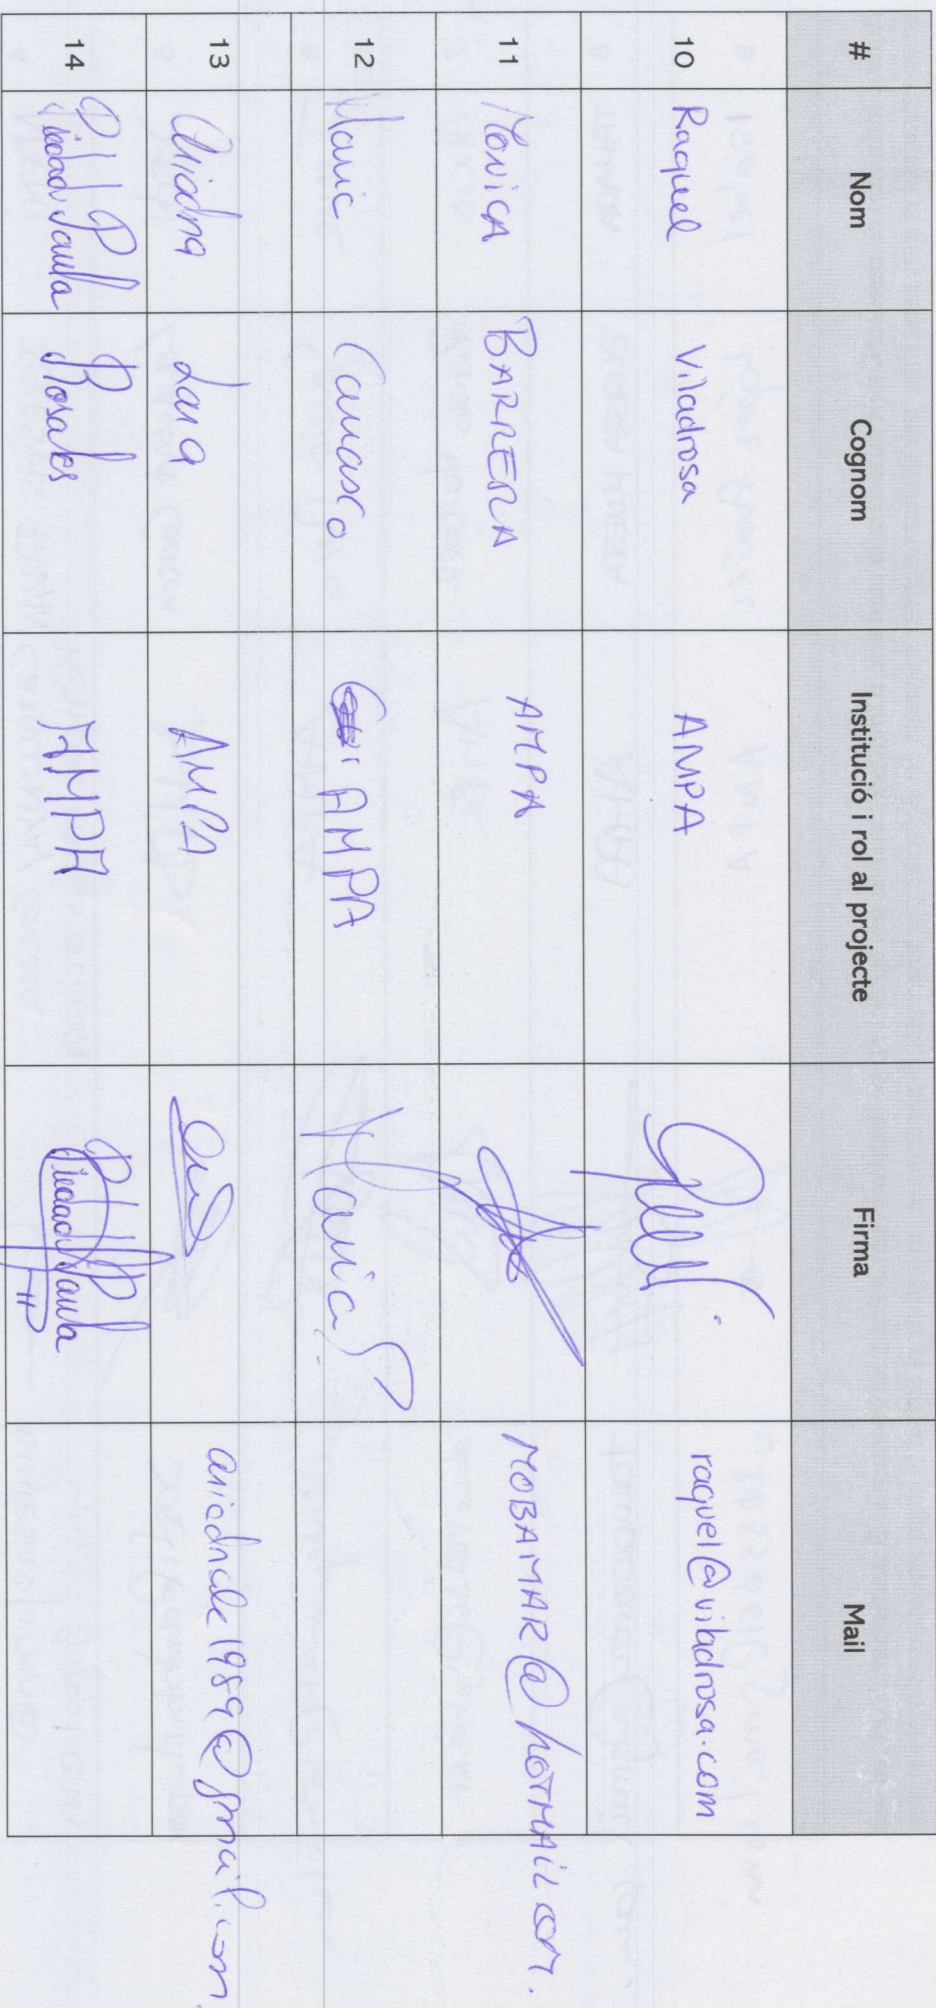 # Nom Cognom Institució i rol al projecte Firma Mail
10 Raquel Viladrosa AMPA raquel@viladrosa.com
11 MONICA BARRERA AMPA MOBAMAR@HOTMAIL.COM.
12 AMPA
13 Ariadna Lara AMPA
14 Piedad Paula Rosales AMPA Piedad Paula